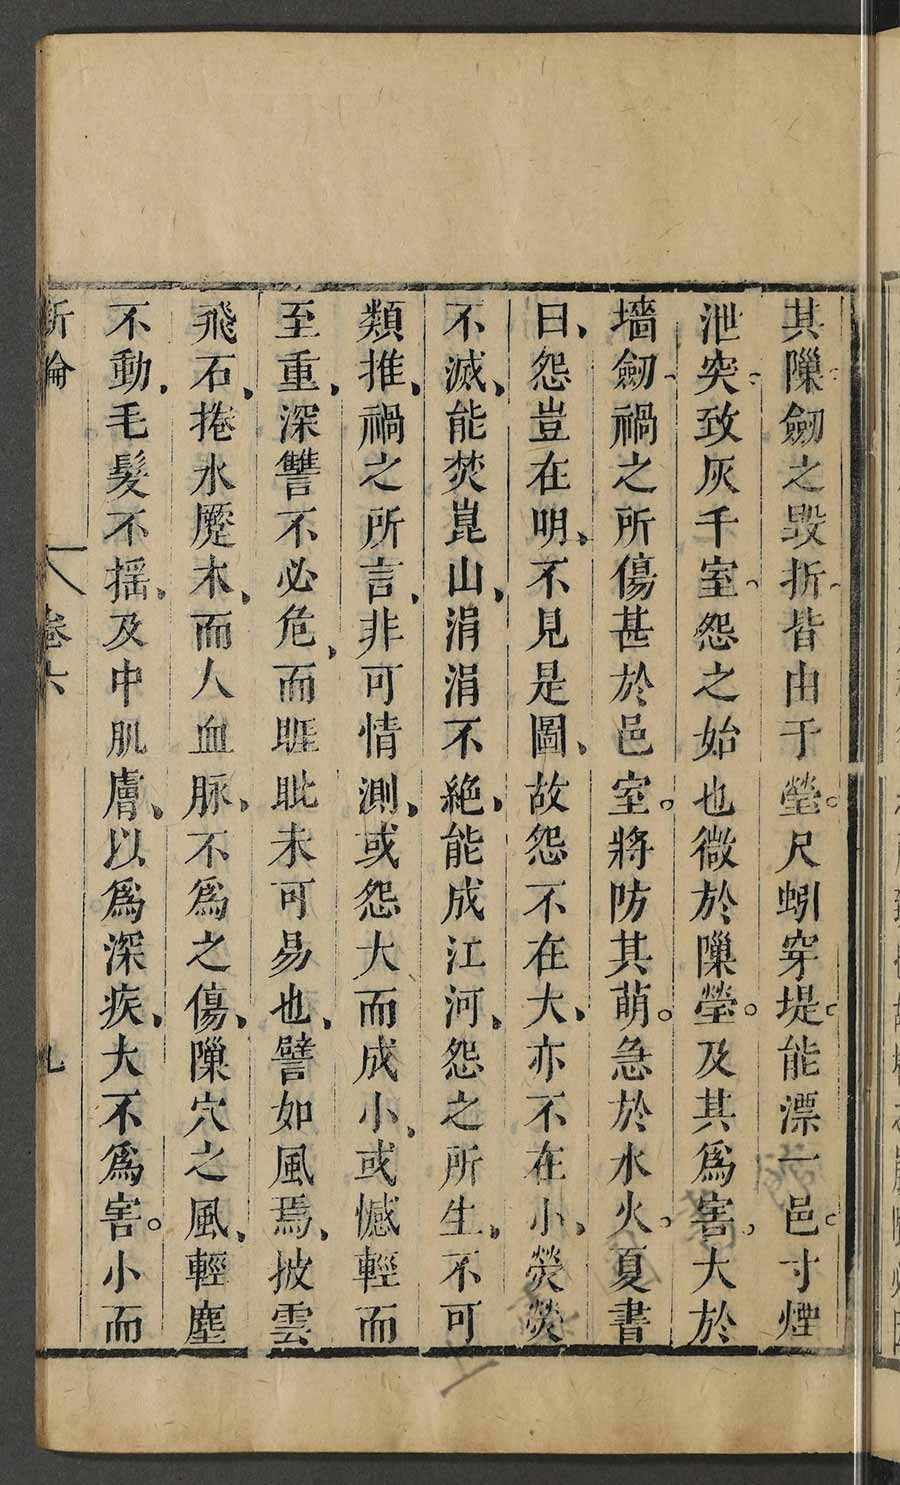 其隟劒之毀折皆由于瑩。尺蚓穿堤。能漂一邑。寸煙
泄突、致灰千室、怨之始也微於隟瑩。及其爲害、大於
墻劒、禍之所傷甚於邑室。將防其萌。急於水火。夏書
曰、怨豈在明、不見是圖、故怨不在大、亦不在小、熒熒
不滅、能焚崑山、涓涓不絶、能成江河、怨之所生、不可
類推、禍之所言、非可情測、或怨大而成小、或憾輕而
至重、深讐不必危、而睚眦未可易也、譬如風焉、披雲
飛石、捲水蹙木、而人血脉、不爲之傷、隟穴之風、輕塵
不動、毛髮不揺、及中肌膚、以爲深疾、大不爲害。小而
新論 卷六 九